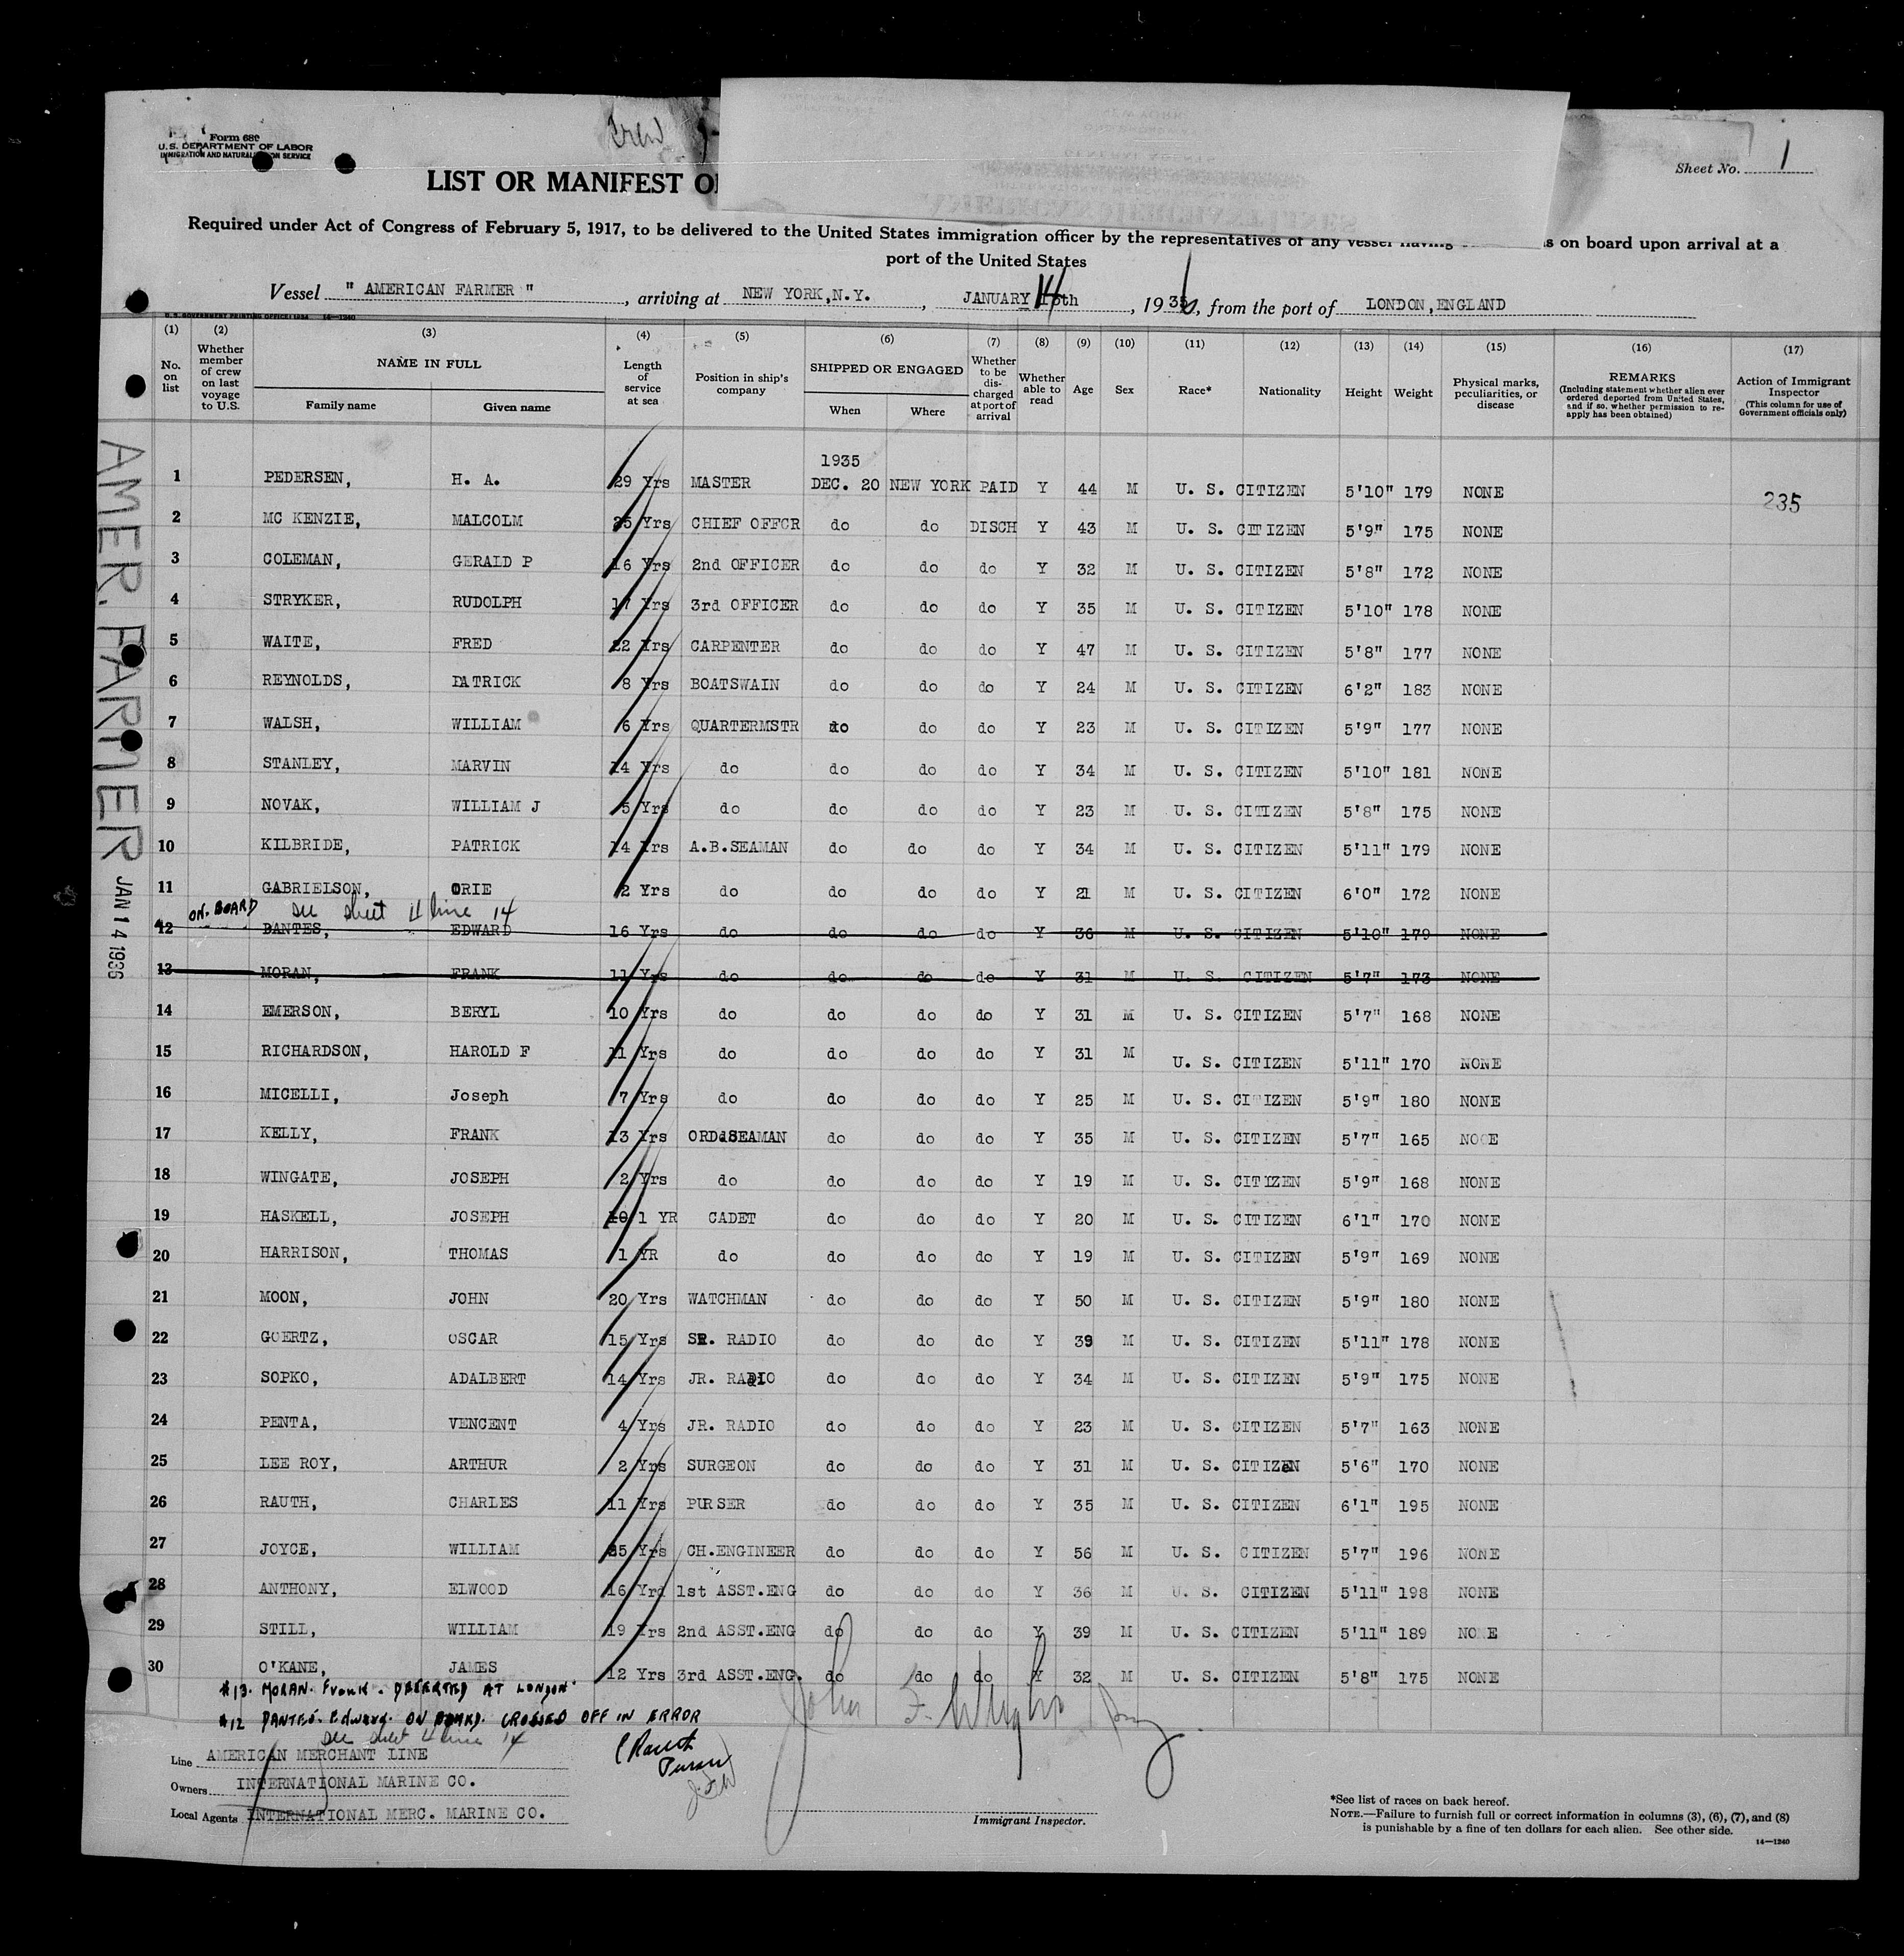 Form 689
U. S. DEPARTMENT OF LABOR
IMMIGRATION AND NATURALIZATION SERVICE
Crew
LIST OR MANIFEST OF
Sheet No. 1
Required under Act of Congress of February 5, 1917, to be delivered to the United States immigration officer by the representatives of any vessel having on board upon arrival at a
port of the United States
Vessel " AMERICAN FARMER ", arriving at NEW YORK,N.Y., JANUARY 14th, 1936, from the port of LONDON,ENGLAND
(1) (2) (3) (4) (5) (6) (7) (8) (9) (10) (11) (12) (13) (14) (15) (16) (17)
No. on list
Whether member of crew on last voyage to U.S.
NAME IN FULL
Family name
Given name
Length of service at sea
Position in ship's company
SHIPPED OR ENGAGED
When
Where
Whether to be discharged at port of arrival
Whether able to read
Age
Sex
Race*
Nationality
Height
Weight
Physical marks, peculiarities, or disease
REMARKS
(Including statement whether alien ever ordered deported from United States, and if so, whether permission to reapply has been obtained)
Action of Immigrant Inspector
(This column for use of Government officials only)
AMER. FARMER JAN 14 1936
1935
1 PEDERSEN, H. A. 29 Yrs MASTER DEC. 20 NEW YORK PAID Y 44 M U. S. CITIZEN 5'10" 179 NONE 235
2 MC KENZIE, MALCOLM 25 Yrs CHIEF OFFCR do do DISCH Y 43 M U. S. CITIZEN 5'9" 175 NONE
3 COLEMAN, GERALD P 16 Yrs 2nd OFFICER do do do Y 32 M U. S. CITIZEN 5'8" 172 NONE
4 STRYKER, RUDOLPH 17 Yrs 3rd OFFICER do do do Y 35 M U. S. CITIZEN 5'10" 178 NONE
5 WAITE, FRED 22 Yrs CARPENTER do do do Y 47 M U. S. CITIZEN 5'8" 177 NONE
6 REYNOLDS, PATRICK 8 Yrs BOATSWAIN do do do Y 24 M U. S. CITIZEN 6'2" 183 NONE
7 WALSH, WILLIAM 6 Yrs QUARTERMSTR do do do Y 23 M U. S. CITIZEN 5'9" 177 NONE
8 STANLEY, MARVIN 14 Yrs do do do do Y 34 M U. S. CITIZEN 5'10" 181 NONE
9 NOVAK, WILLIAM J 5 Yrs do do do do Y 23 M U. S. CITIZEN 5'8" 175 NONE
10 KILBRIDE, PATRICK 14 Yrs A.B.SEAMAN do do do Y 34 M U. S. CITIZEN 5'11" 179 NONE
11 GABRIELSON, ORIE 2 Yrs do do do do Y 21 M U. S. CITIZEN 6'0" 172 NONE
ON. BOARD see sheet 4 line 14
12 DANTES, EDWARD 16 Yrs do do do do Y 36 M U. S. CITIZEN 5'10" 179 NONE
13 MORAN, FRANK 11 Yrs do do do do Y 31 M U. S. CITIZEN 5'7" 173 NONE
14 EMERSON, BERYL 10 Yrs do do do do Y 31 M U. S. CITIZEN 5'7" 168 NONE
15 RICHARDSON, HAROLD F 11 Yrs do do do do Y 31 M U. S. CITIZEN 5'11" 170 NONE
16 MICELLI, Joseph 7 Yrs do do do do Y 25 M U. S. CITIZEN 5'9" 180 NONE
17 KELLY, FRANK 13 Yrs ORD.SEAMAN do do do Y 35 M U. S. CITIZEN 5'7" 165 NOOE
18 WINGATE, JOSEPH 2 Yrs do do do do Y 19 M U. S. CITIZEN 5'9" 168 NONE
19 HASKELL, JOSEPH 10 1 YR CADET do do do Y 20 M U. S. CITIZEN 6'1" 170 NONE
20 HARRISON, THOMAS 1 YR do do do do Y 19 M U. S. CITIZEN 5'9" 169 NONE
21 MOON, JOHN 20 Yrs WATCHMAN do do do Y 50 M U. S. CITIZEN 5'9" 180 NONE
22 GOERTZ, OSCAR 15 Yrs SR. RADIO do do do Y 39 M U. S. CITIZEN 5'11" 178 NONE
23 SOPKO, ADALBERT 14 Yrs JR. RADIO do do do Y 34 M U. S. CITIZEN 5'9" 175 NONE
24 PENTA, VENCENT 4 Yrs JR. RADIO do do do Y 23 M U. S. CITIZEN 5'7" 163 NONE
25 LEE ROY, ARTHUR 2 Yrs SURGEON do do do Y 31 M U. S. CITIZEN 5'6" 170 NONE
26 RAUTH, CHARLES 11 Yrs PURSER do do do Y 35 M U. S. CITIZEN 6'1" 195 NONE
27 JOYCE, WILLIAM 35 Yrs CH.ENGINEER do do do Y 56 M U. S. CITIZEN 5'7" 196 NONE
28 ANTHONY, ELWOOD 16 Yrd 1st ASST.ENG do do do Y 36 M U. S. CITIZEN 5'11" 198 NONE
29 STILL, WILLIAM 19 Yrs 2nd ASST.ENG do do do Y 39 M U. S. CITIZEN 5'11" 189 NO E
30 O'KANE, JAMES 12 Yrs 3rd ASST.ENG. do do do Y 32 M U. S. CITIZEN 5'8" 175 NONE
#13. MORAN. Frank. DESERTED AT LONDON.
#12 DANTES. Edward. ON BOARD. CROSSED OFF IN ERROR
see sheet 4 line 14
C Rauth
Purser
Line AMERICAN MERCHANT LINE
Owners INTERNATIONAL MARINE CO.
Local Agents INTERNATIONAL MERC. MARINE CO.
Immigrant Inspector.
*See list of races on back hereof.
NOTE.—Failure to furnish full or correct information in columns (3), (6), (7), and (8)
is punishable by a fine of ten dollars for each alien. See other side.
14—1240